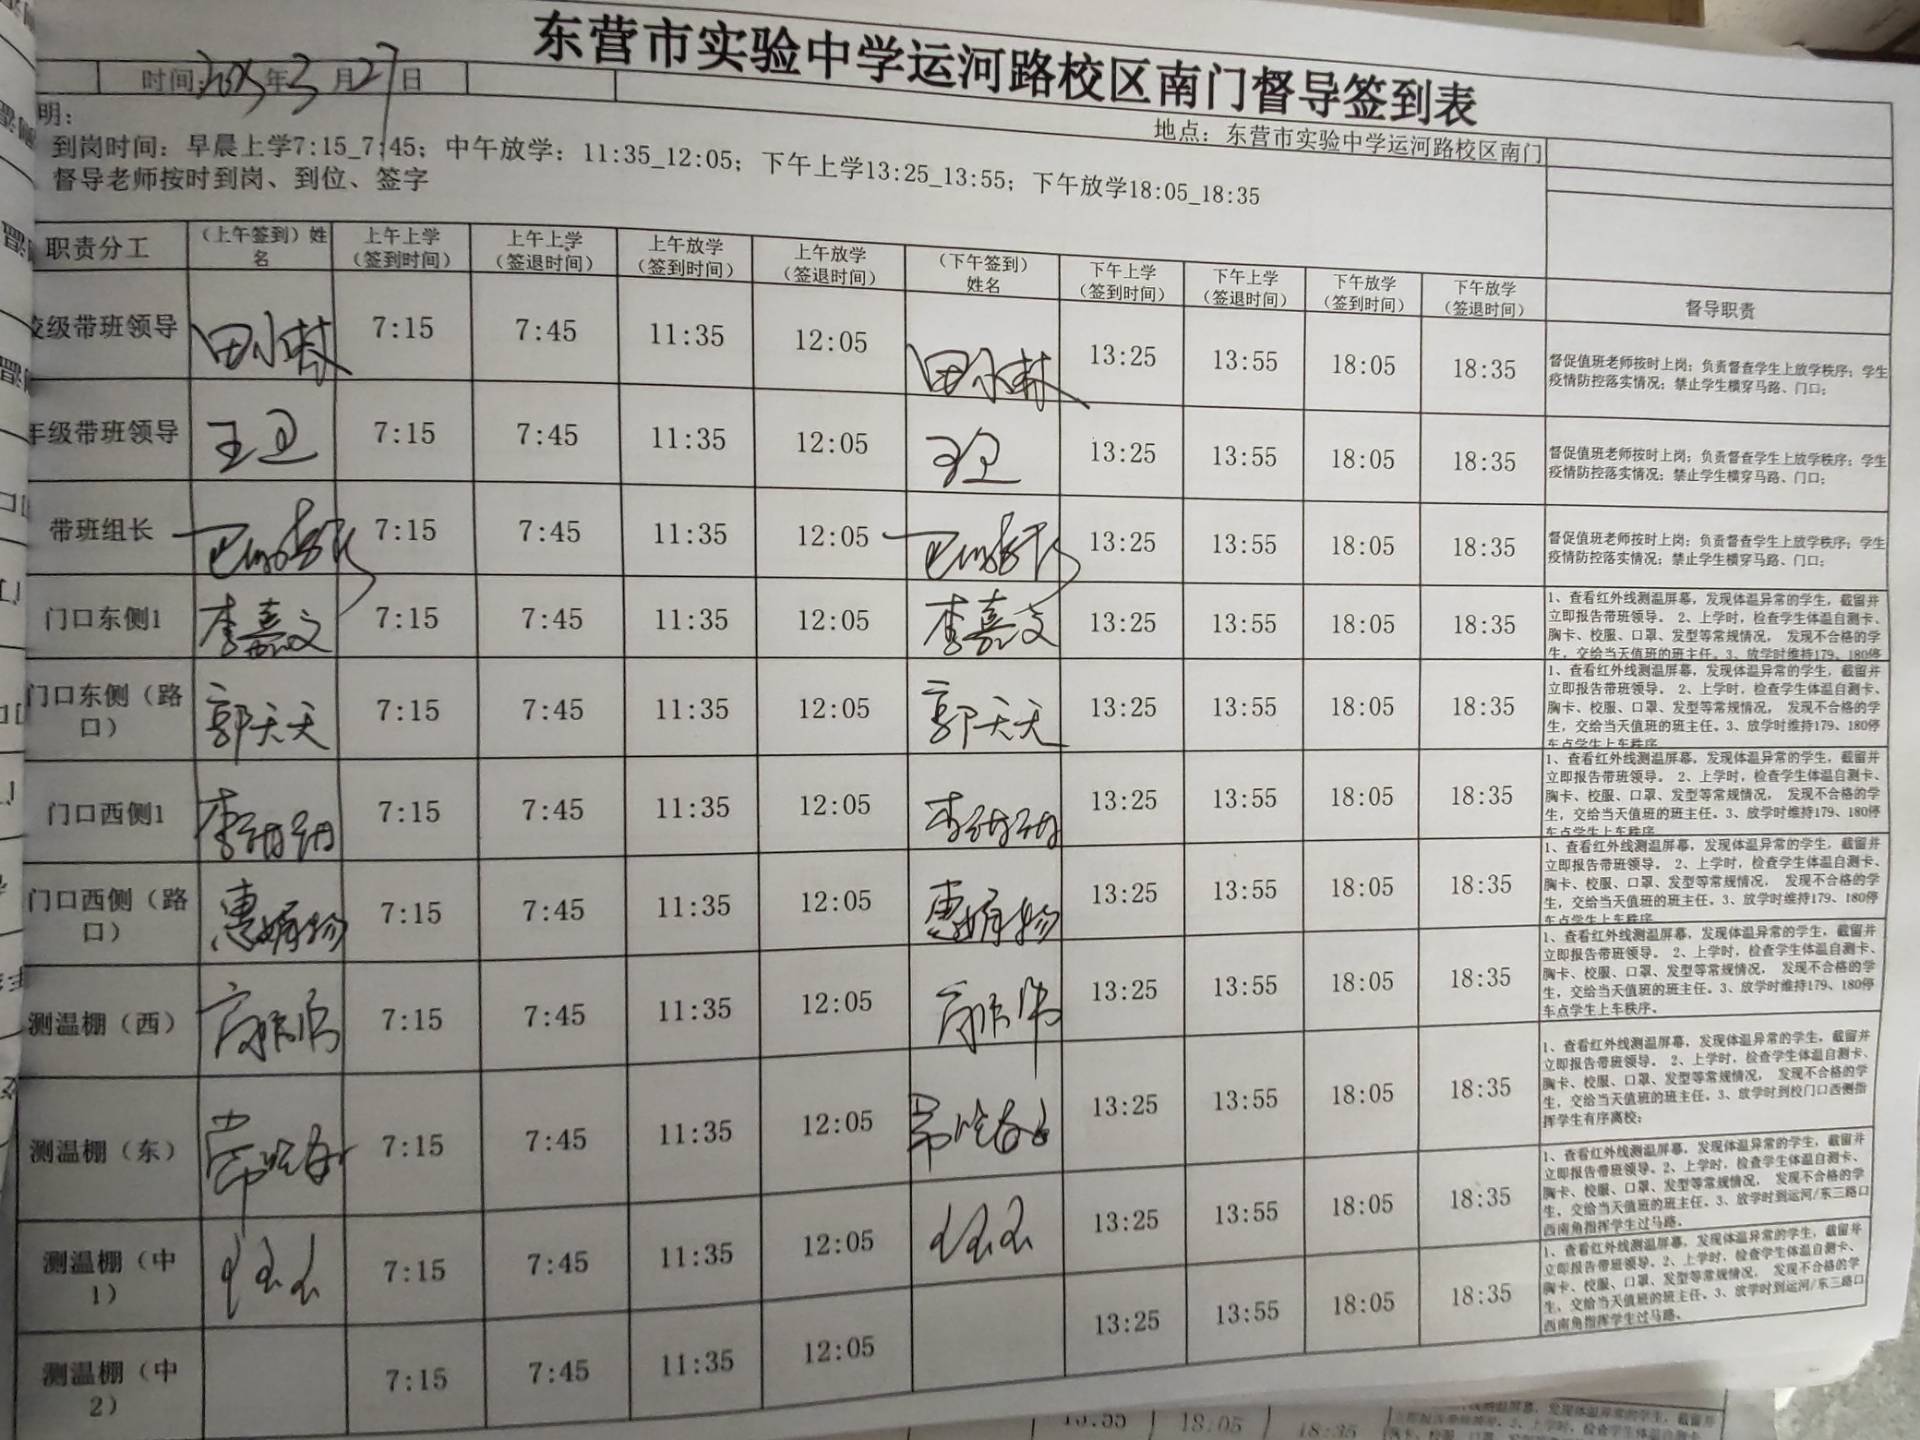 东营市实验中学运河路校区南门督导签到表
时间: 年3月27日
地点：东营市实验中学运河路校区南门
明：
到岗时间：早晨上学7:15_7:45；中午放学：11:35_12:05；下午上学13:25_13:55；下午放学18:05_18:35
督导老师按时到岗、到位、签字
职责分工 （上午签到）姓名 上午上学（签到时间） 上午上学（签退时间） 上午放学（签到时间） 上午放学（签退时间） （下午签到）姓名 下午上学（签到时间） 下午上学（签退时间） 下午放学（签到时间） 下午放学（签退时间） 督导职责
校级带班领导 田小林 7:15 7:45 11:35 12:05 田小林 13:25 13:55 18:05 18:35 督促值班老师按时上岗；负责督查学生上放学秩序；学生疫情防控落实情况；禁止学生横穿马路、门口；
年级带班领导 王卫 7:15 7:45 11:35 12:05 王卫 13:25 13:55 18:05 18:35 督促值班老师按时上岗；负责督查学生上放学秩序；学生疫情防控落实情况；禁止学生横穿马路、门口；
带班组长 7:15 7:45 11:35 12:05 13:25 13:55 18:05 18:35 督促值班老师按时上岗；负责督查学生上放学秩序；学生疫情防控落实情况；禁止学生横穿马路、门口；
门口东侧1 李嘉文 7:15 7:45 11:35 12:05 李嘉文 13:25 13:55 18:05 18:35 1、查看红外线测温屏幕，发现体温异常的学生，截留并立即报告带班领导。 2、上学时，检查学生体温自测卡、胸卡、校服、口罩、发型等常规情况， 发现不合格的学生，交给当天值班的班主任。3、放学时维持179、180停
门口东侧（路口） 郭天天 7:15 7:45 11:35 12:05 郭天天 13:25 13:55 18:05 18:35 1、查看红外线测温屏幕，发现体温异常的学生，截留并立即报告带班领导。 2、上学时，检查学生体温自测卡、胸卡、校服、口罩、发型等常规情况， 发现不合格的学生，交给当天值班的班主任。3、放学时维持179、180停车点学生上车秩序
门口西侧1 7:15 7:45 11:35 12:05 13:25 13:55 18:05 18:35 1、查看红外线测温屏幕，发现体温异常的学生，截留并立即报告带班领导。 2、上学时，检查学生体温自测卡、胸卡、校服、口罩、发型等常规情况， 发现不合格的学生，交给当天值班的班主任。3、放学时维持179、180停车点学生上车秩序
门口西侧（路口） 7:15 7:45 11:35 12:05 13:25 13:55 18:05 18:35 1、查看红外线测温屏幕，发现体温异常的学生，截留并立即报告带班领导。 2、上学时，检查学生体温自测卡、胸卡、校服、口罩、发型等常规情况， 发现不合格的学生，交给当天值班的班主任。3、放学时维持179、180停车点学生上车秩序
测温棚（西） 7:15 7:45 11:35 12:05 13:25 13:55 18:05 18:35 1、查看红外线测温屏幕，发现体温异常的学生，截留并立即报告带班领导。 2、上学时，检查学生体温自测卡、胸卡、校服、口罩、发型等常规情况， 发现不合格的学生，交给当天值班的班主任。3、放学时维持179、180停车点学生上车秩序。
测温棚（东） 7:15 7:45 11:35 12:05 13:25 13:55 18:05 18:35 1、查看红外线测温屏幕，发现体温异常的学生，截留并立即报告带班领导。 2、上学时，检查学生体温自测卡、胸卡、校服、口罩、发型等常规情况， 发现不合格的学生，交给当天值班的班主任。3、放学时到校门口西侧指挥学生有序离校；
测温棚（中1） 7:15 7:45 11:35 12:05 13:25 13:55 18:05 18:35 1、查看红外线测温屏幕，发现体温异常的学生，截留并立即报告带班领导。2、上学时，检查学生体温自测卡、胸卡、校服、口罩、发型等常规情况， 发现不合格的学生，交给当天值班的班主任。3、放学时到运河/东三路口西南角指挥学生过马路。
测温棚（中2） 7:15 7:45 11:35 12:05 13:25 13:55 18:05 18:35 1、查看红外线测温屏幕，发现体温异常的学生，截留并立即报告带班领导。2、上学时，检查学生体温自测卡、胸卡、校服、口罩、发型等常规情况， 发现不合格的学生，交给当天值班的班主任。3、放学时到运河/东三路口西南角指挥学生过马路。
18:05 18:35